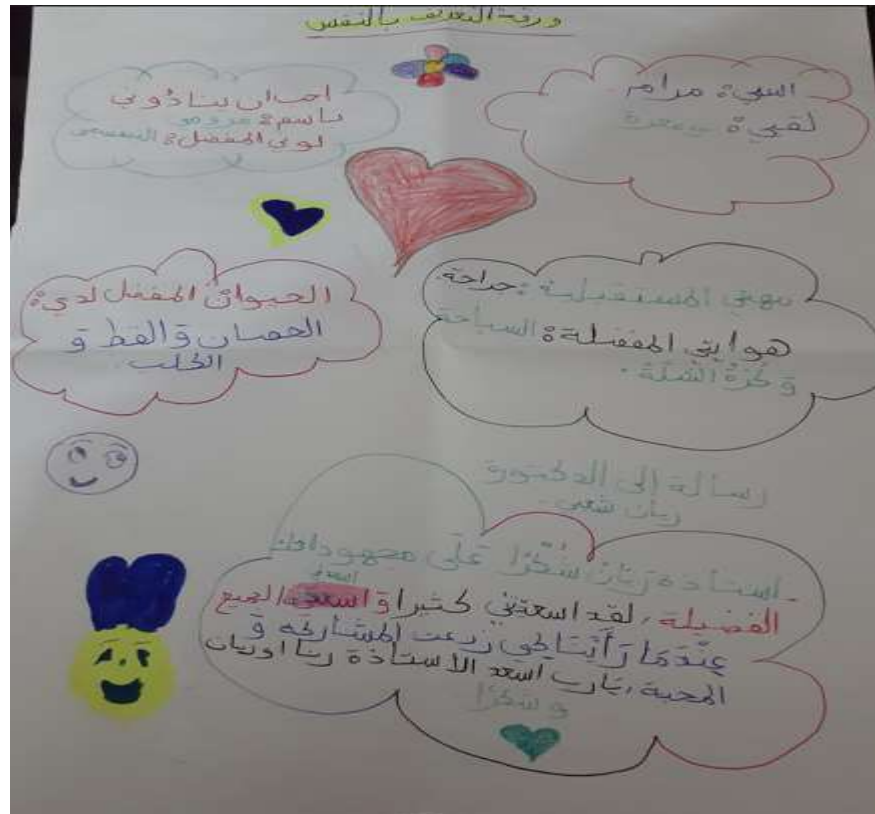 ورقة التعريف بالنفس
اسمي: مرام
لقبي: بومعزة
احب ان ينادوني
باسم: مرومي
لوني المفضل: البنفسجي
مهنتي المستقبلية: جراحة.
هوايتي المفضلة: السباحة
وَ كُرَةُ السَّلَة.
الحيوان المفضل لدي:
الحصان وَ القط وَ
الكلب.
رسالة إلى الدكتورة
ريان شعبي.
أستاذة رَيَانْ شُكْرًا عَلَى مجهوداتك
الفضيلة، لقد اسعدتني كثيرا وَ اسعدتي الجميع
عِنْدَمَا رَأَيْنَا
زرعت المشاركة وَ
المحبة، يارب اسعد الأستاذة
وَ شكرًا